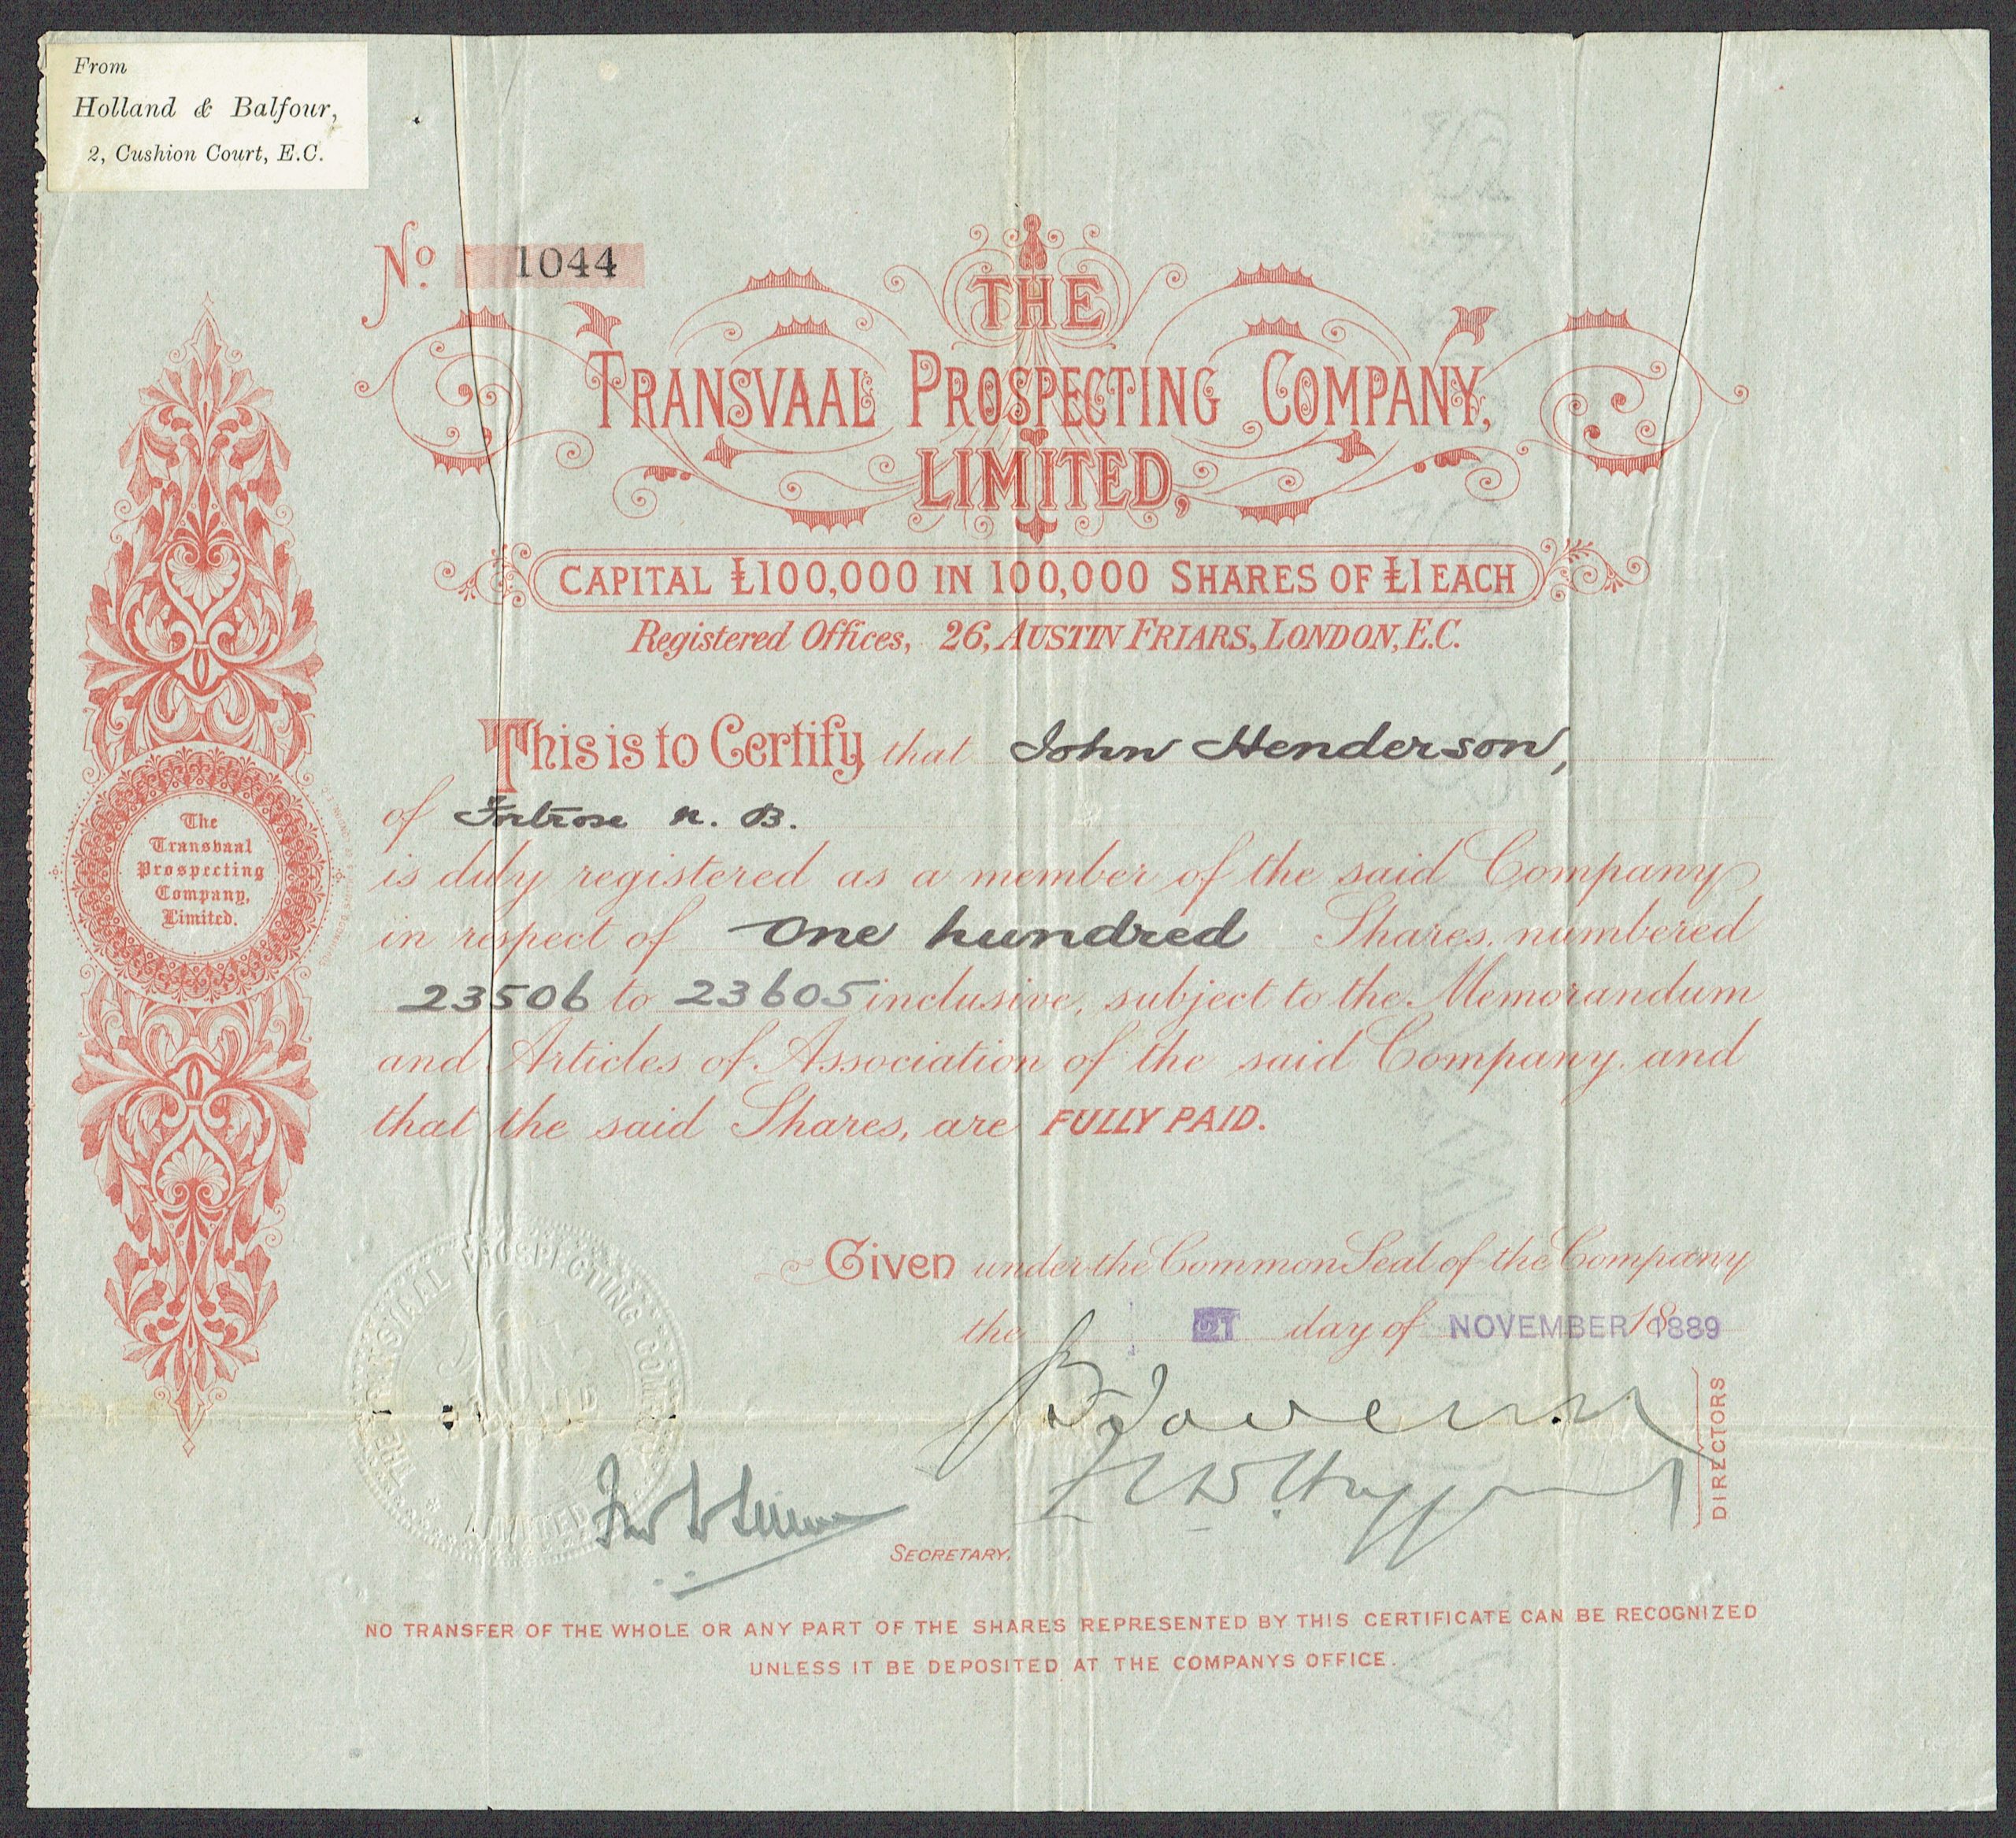 From
Holland & Balfour,
2, Cushion Court, E.C.
No. 1044
THE
TRANSVAAL PROSPECTING COMPANY,
LIMITED,
CAPITAL £100,000 IN 100,000 SHARES OF £1 EACH
Registered Offices, 26, AUSTIN FRIARS, LONDON, E.C.
This is to Certify that John Henderson,
of Fortrose N. B.
is duly registered as a member of the said Company
in respect of One hundred Shares, numbered
23506 to 23605 inclusive, subject to the Memorandum
and Articles of Association of the said Company and
that the said Shares, are FULLY PAID.
The
Transvaal
Prospecting
Company,
Limited.
Given under the Common Seal of the Company
the 21 day of NOVEMBER 18 1889
THE TRANSVAAL PROSPECTING COMPANY
LIMITED
DIRECTORS
SECRETARY.
NO TRANSFER OF THE WHOLE OR ANY PART OF THE SHARES REPRESENTED BY THIS CERTIFICATE CAN BE RECOGNIZED
UNLESS IT BE DEPOSITED AT THE COMPANYS OFFICE.